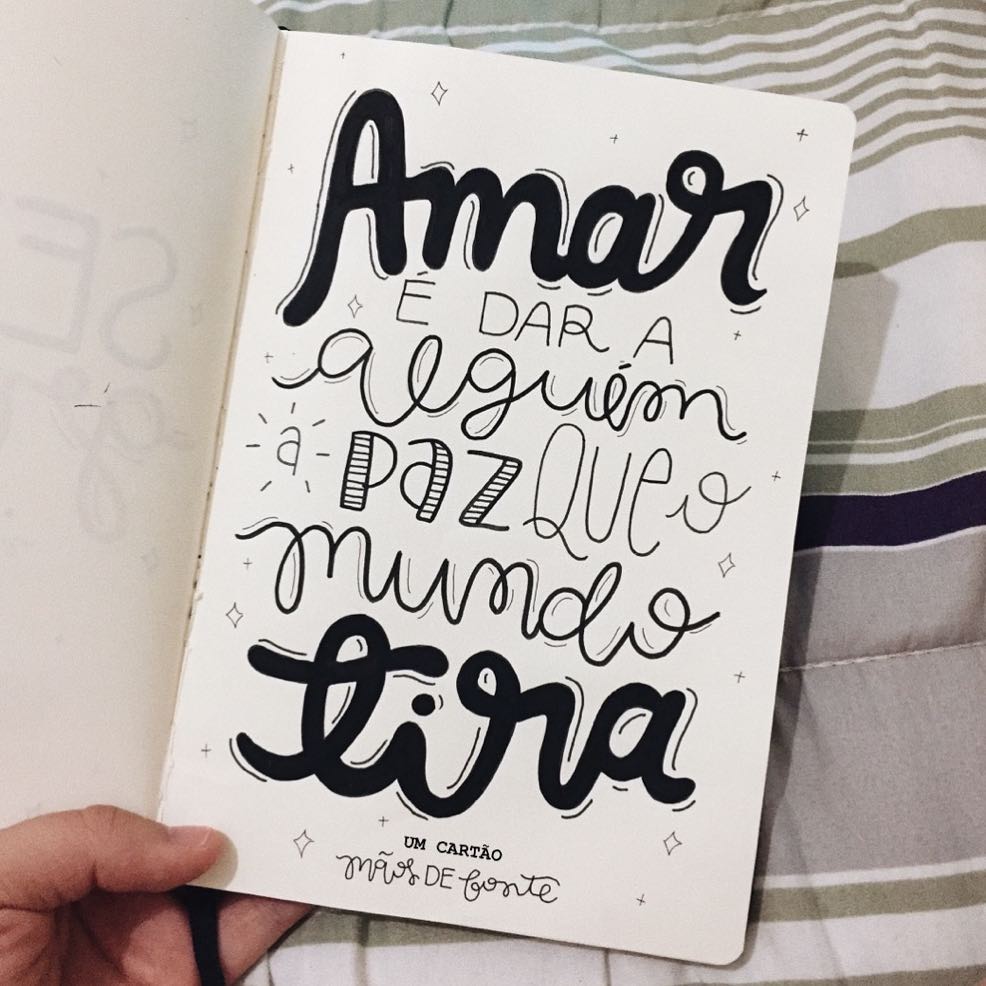 Amar
É DAR A
alguém
a PAZ QUE o
mundo
tira
UM CARTÃO
mãos DE fonte